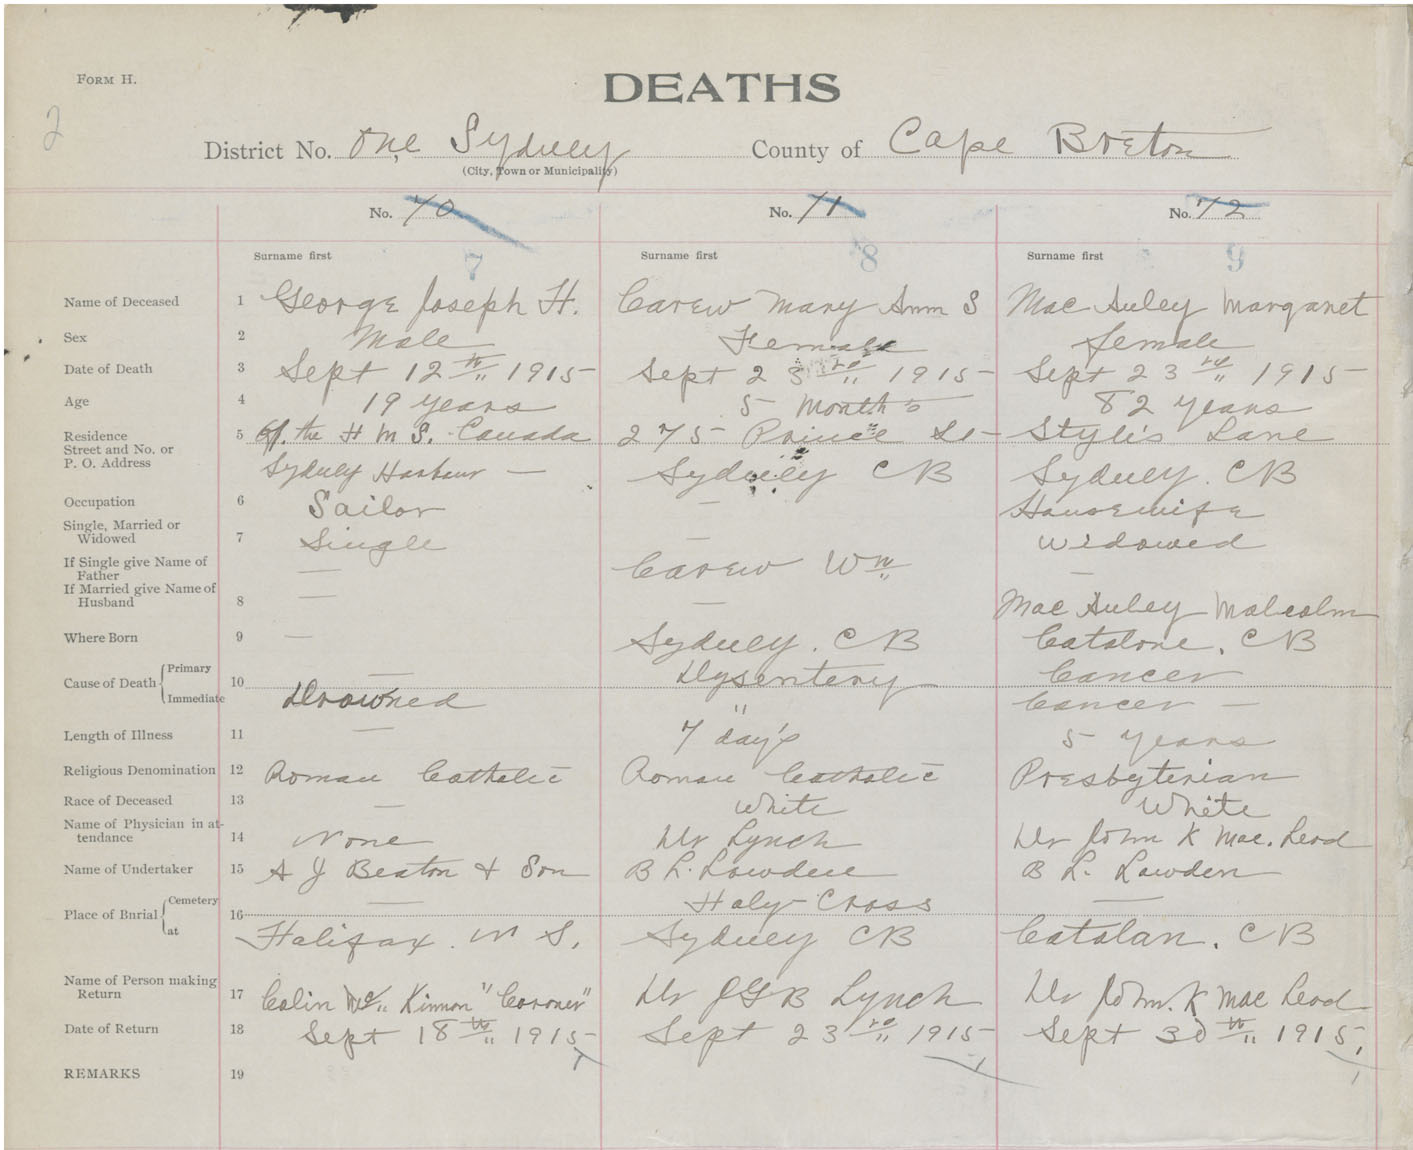 FORM H.
DEATHS
2
District No. One Sydney County of Cape Breton
(City, Town or Municipality)
No. 70 No. 71 No. 72
Surname first Surname first Surname first
7 8 9
Name of Deceased 1 George Joseph H. Carew Mary Ann S Mac Auley Margaret
Sex 2 Male Female female
Date of Death 3 Sept 12th 1915 Sept 23rd 1915 Sept 23rd 1915
Age 4 19 years 5 Months 82 years
Residence 5 Of the H M S. Canada 275 Prince St Style's Lane
Street and No. or
P. O. Address Sydney Harbour — Sydney CB Sydney. CB
Occupation 6 Sailor — Housewife
Single, Married or
Widowed 7 Single — Widowed
If Single give Name of
Father — Carew Wm —
If Married give Name of
Husband 8 — — Mac Auley Malcolm
Where Born 9 — Sydney. CB Catalone. CB
Cause of Death Primary 10 — Dysentery Cancer
Immediate Drowned " Cancer —
Length of Illness 11 — 7 day's 5 years
Religious Denomination 12 Roman Catholic Roman Catholic Presbyterian
Race of Deceased 13 — White White
Name of Physician in at-
tendance 14 None Dr Lynch Dr John K Mac. Leod
Name of Undertaker 15 A J Beaton & Son B L. Lowden B L. Lowden
Place of Burial Cemetery 16 — Holy Cross —
at Halifax. N S. Sydney CB Catalan. CB
Name of Person making
Return 17 Colin Mc Kinnon "Coroner" Dr J G B Lynch Dr John. K Mac Leod
Date of Return 18 Sept 18th 1915 Sept 23rd 1915 Sept 30th 1915
REMARKS 19